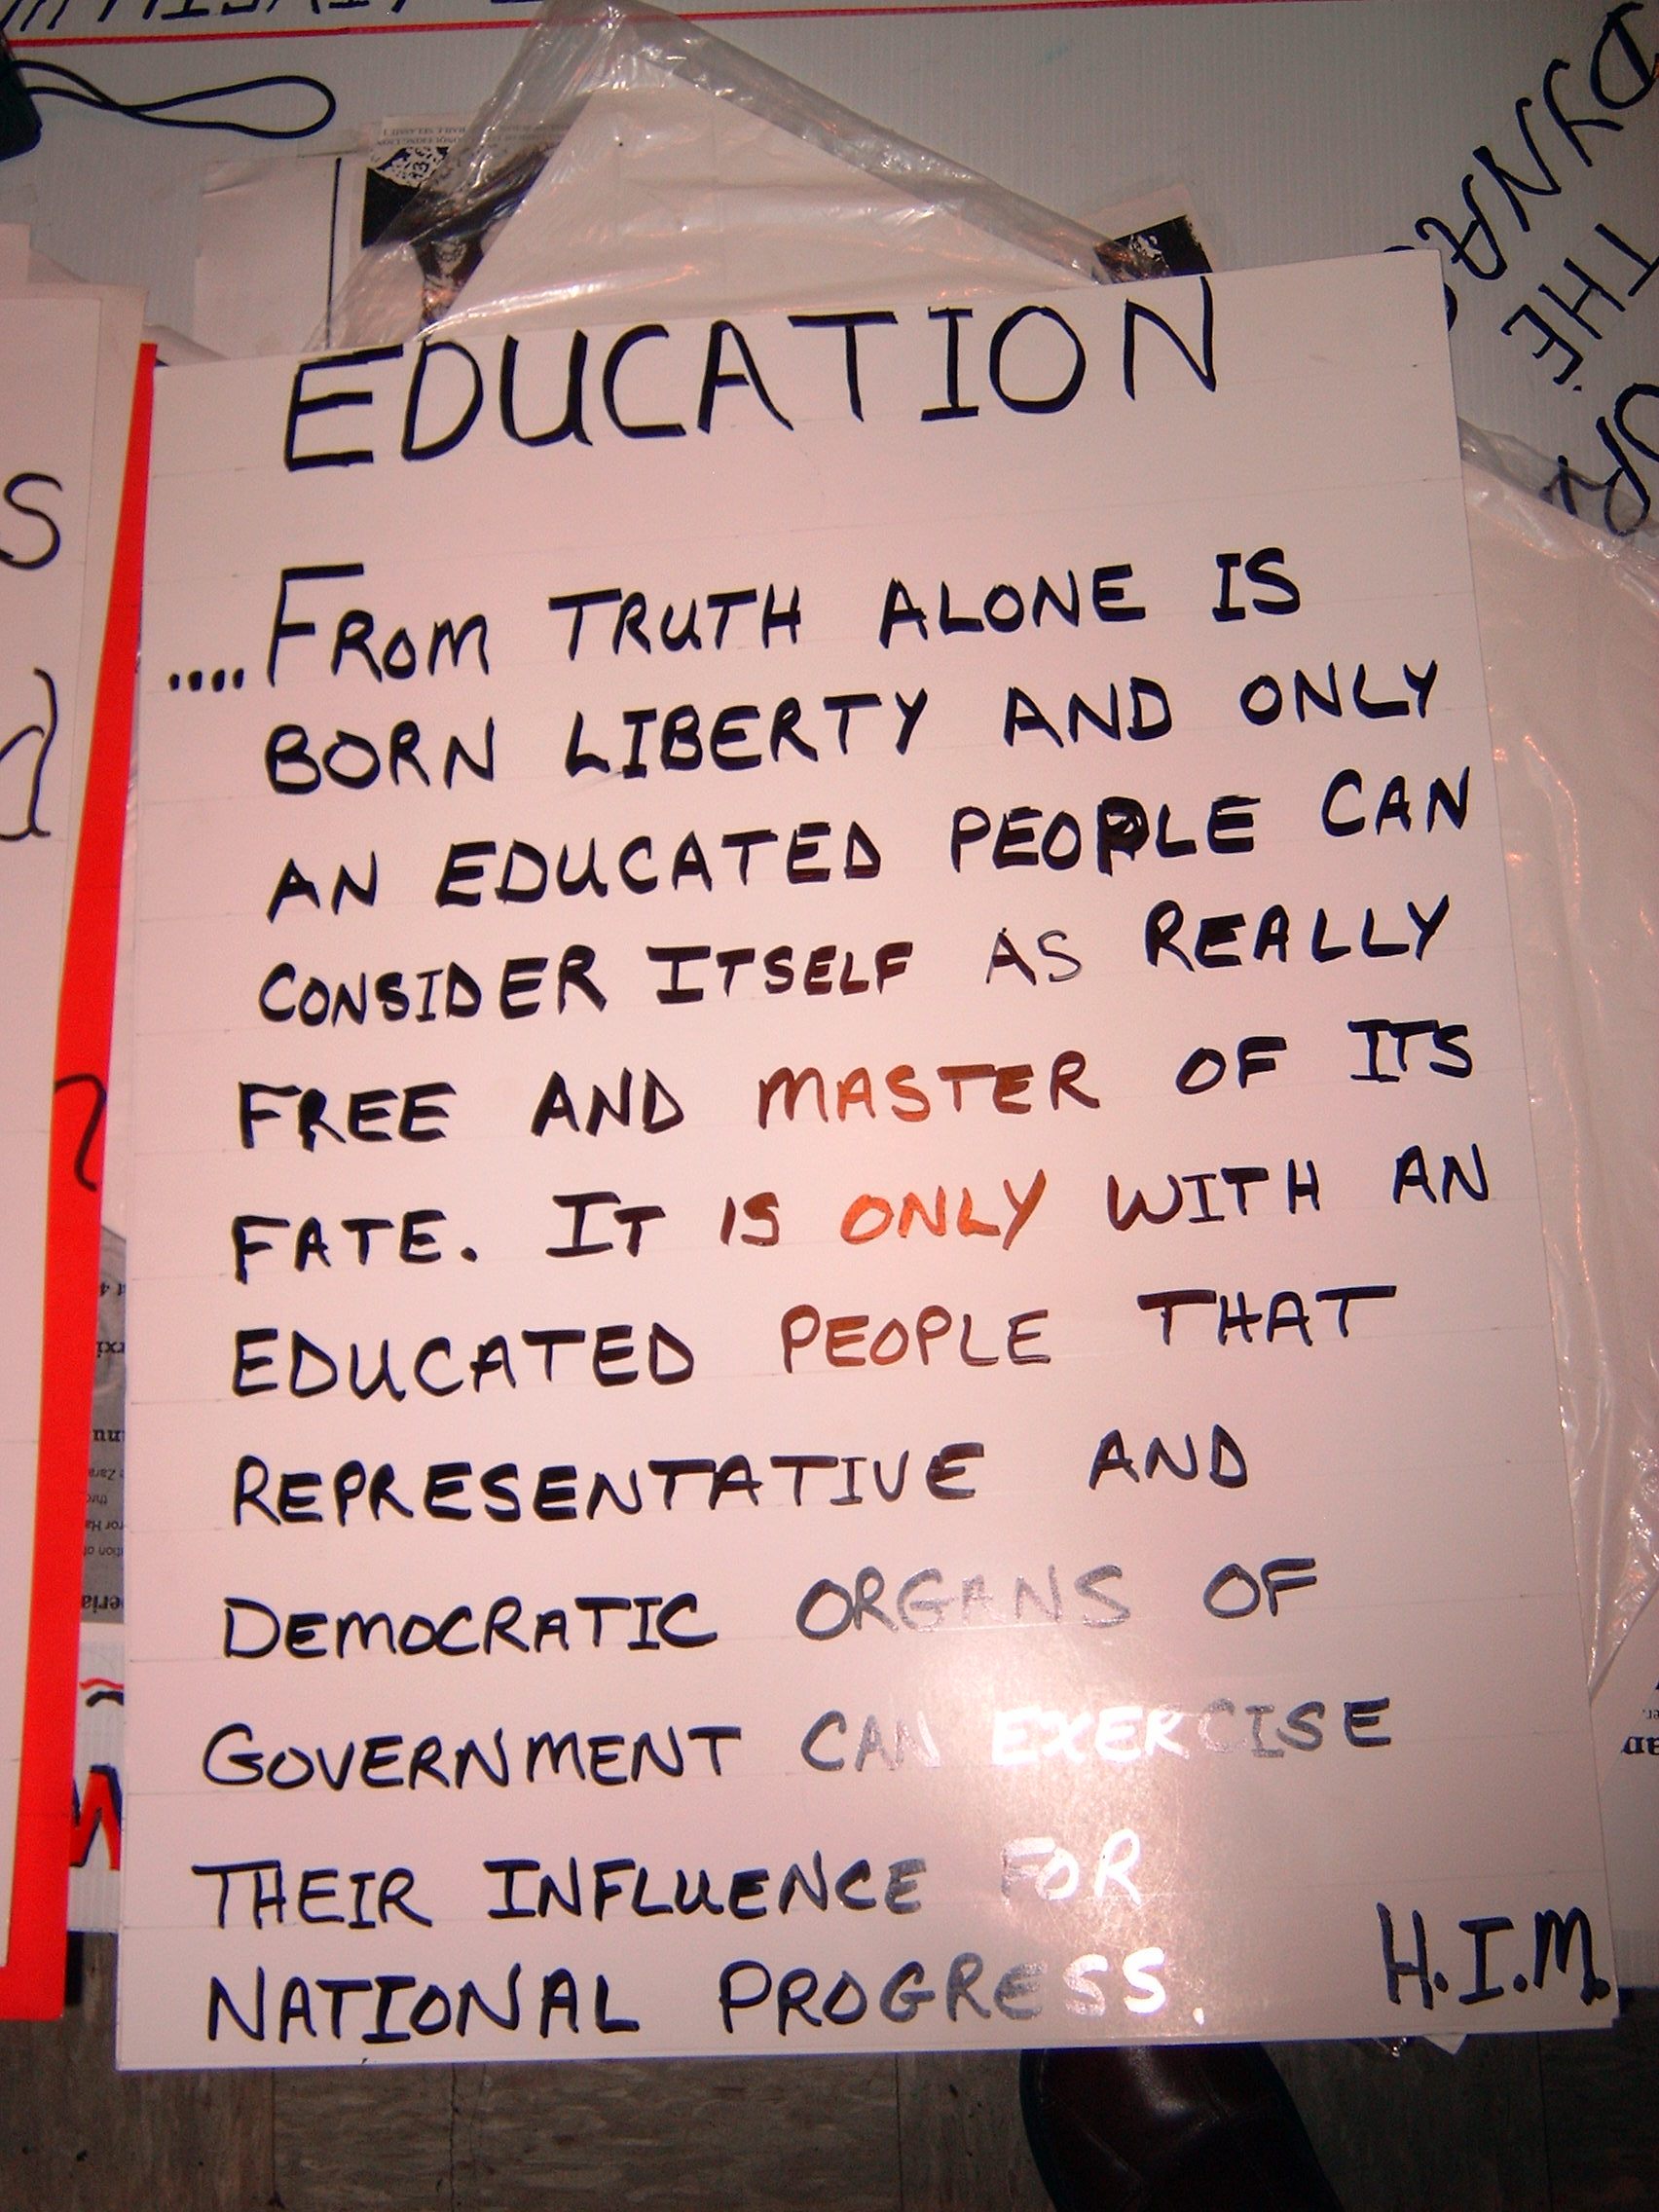 EDUCATION
....FROM TRUTH ALONE IS
BORN LIBERTY AND ONLY
AN EDUCATED PEOPLE CAN
CONSIDER ITSELF AS REALLY
FREE AND MASTER OF ITS
FATE. IT IS ONLY WITH AN
EDUCATED PEOPLE THAT
REPRESENTATIVE AND
DEMOCRATIC ORGANS OF
GOVERNMENT CAN EXERCISE
THEIR INFLUENCE FOR
NATIONAL PROGRESS.
H.I.M.
THE